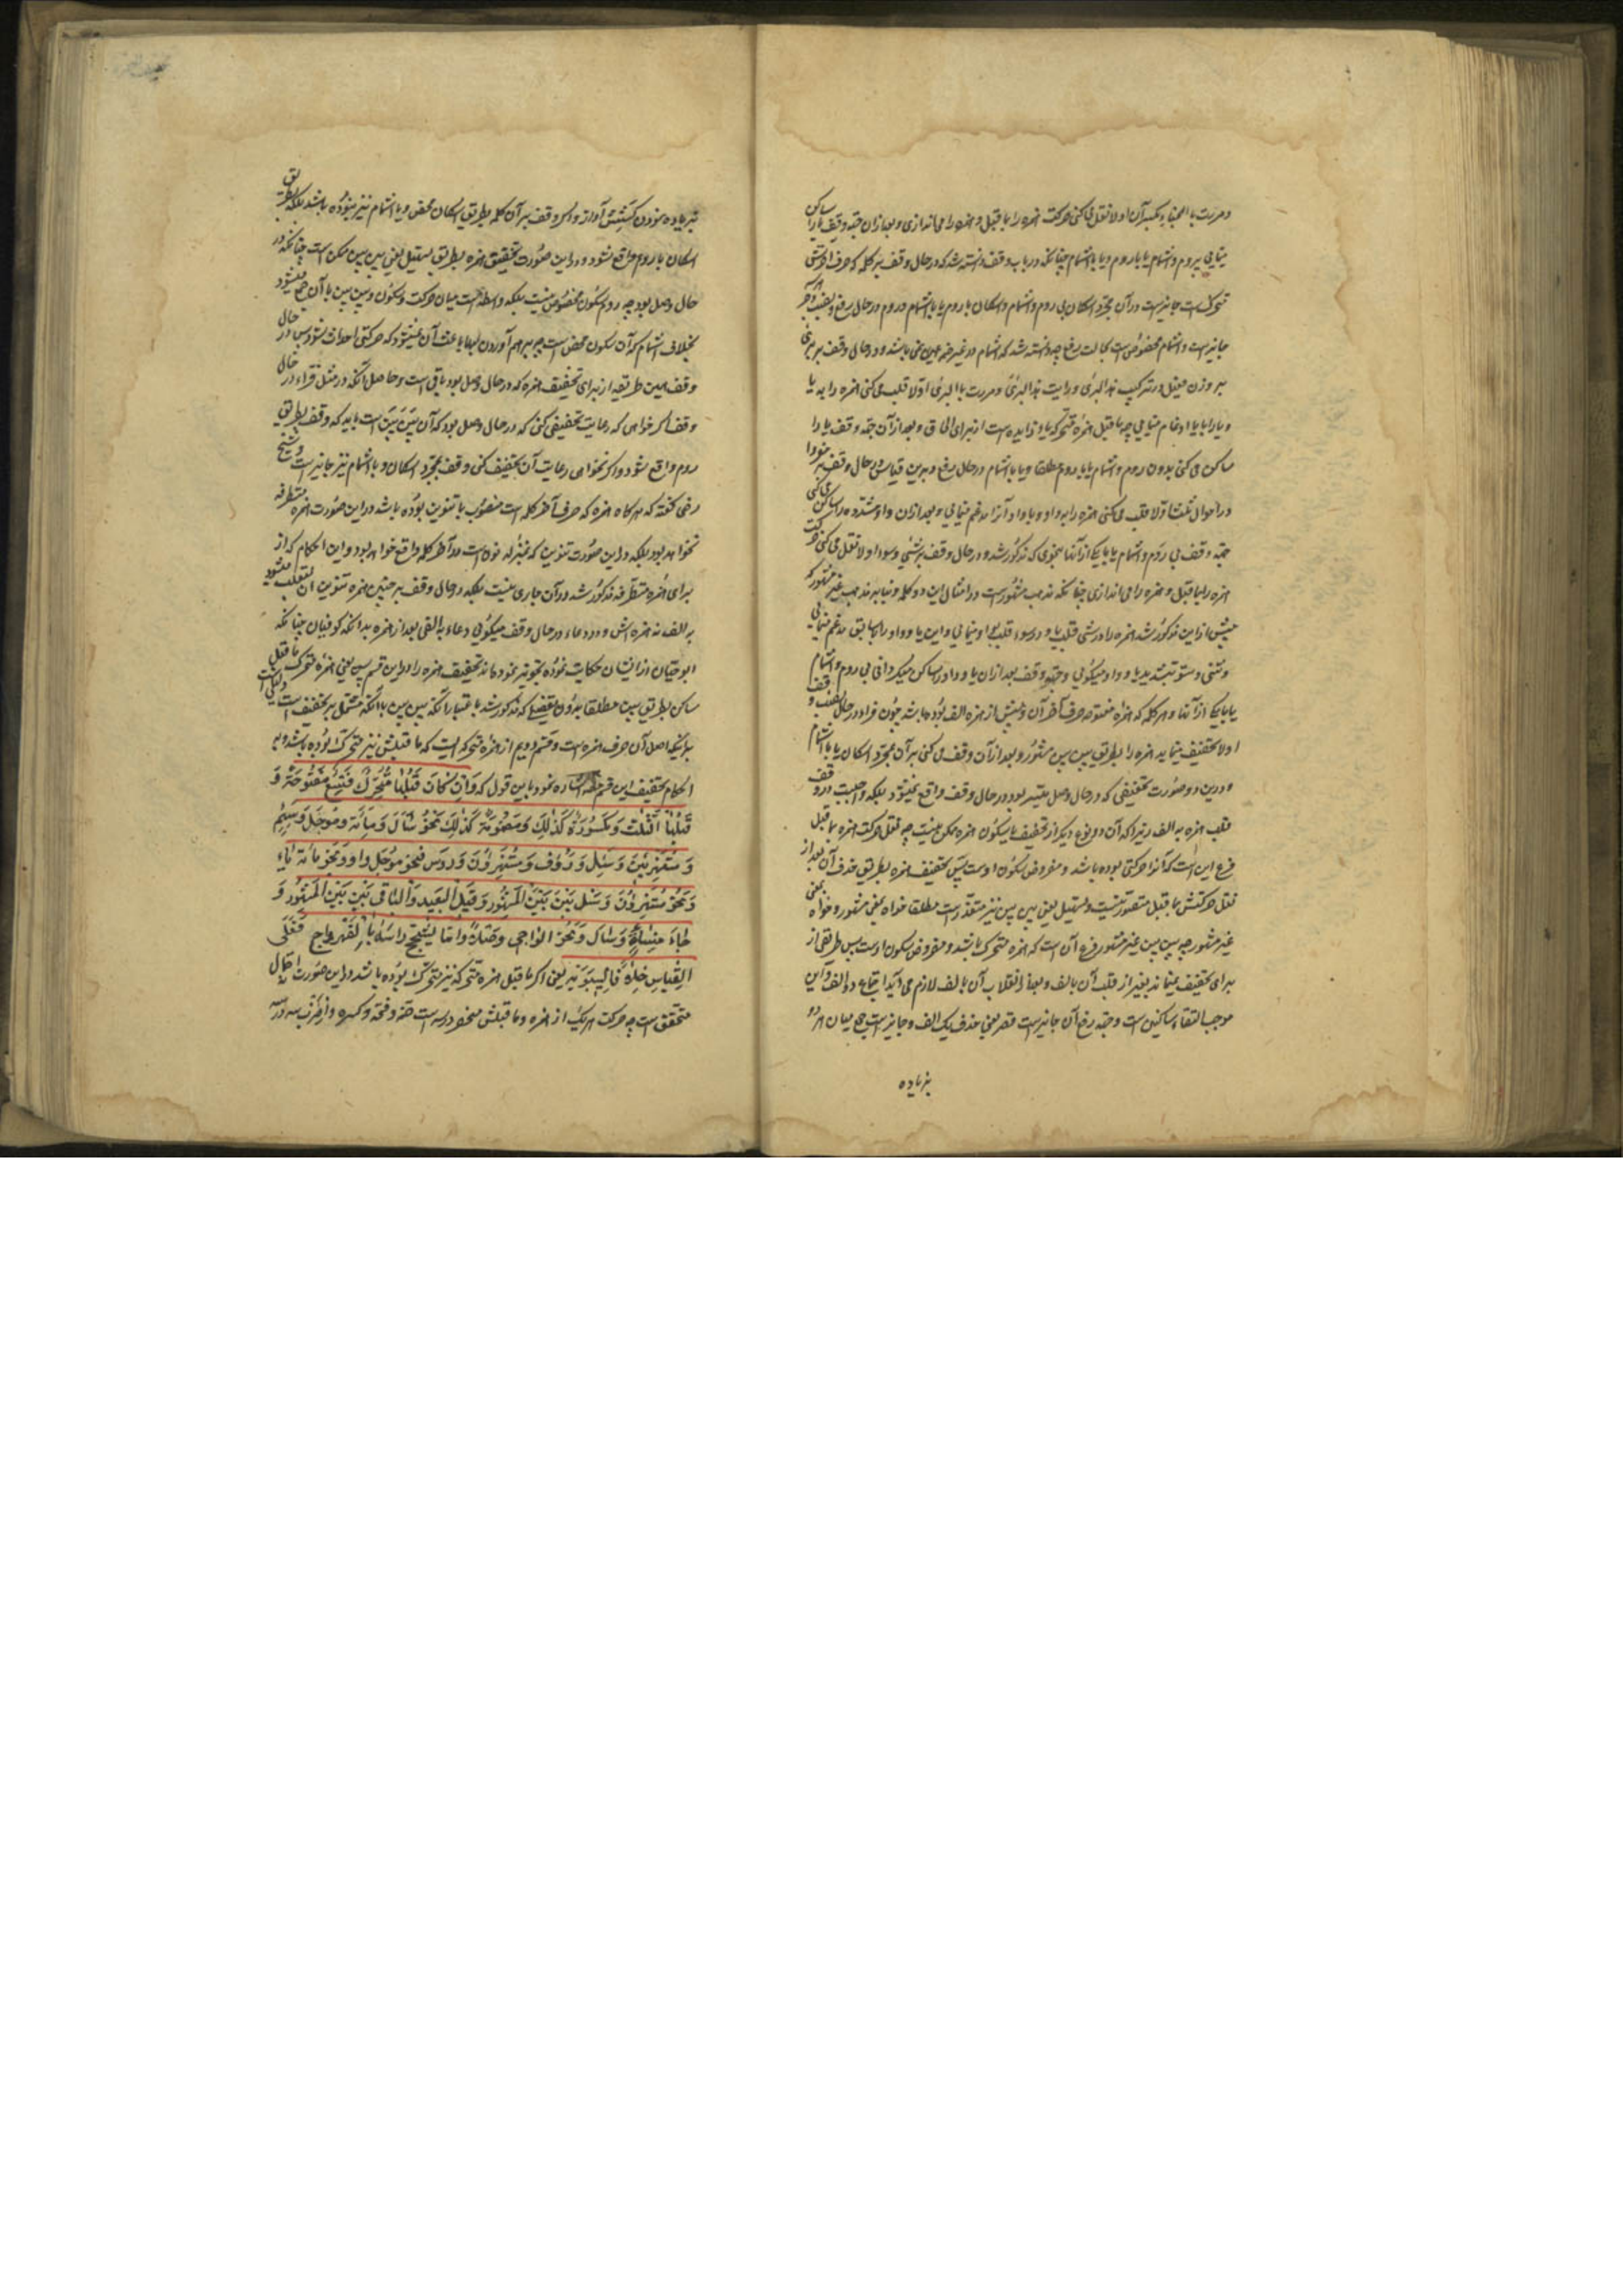 ومررت بالخباء بکسر آن اولا نقل می کنی حرکت همزه را بما قبل و همزه را می اندازی و بعد ازان جهة وقف با را ساکن
نمایی بی روم و اشمام یا با روم و یا با اشمام چنانکه در باب وقف دانسته شد که در حال وقف بر کلمه که حرف آخرش
متحرک است جایز است در آن مجرد اسکان بی روم و اشمام و اسکان با روم یا با اشمام و روم در حال رفع و نصب و جر
جایز است و اشمام مخصوص است بحالت رفع چه دانسته شد که اشمام در غیر ضمه نمی باشد و در حال وقف بر بریء
بر وزن فعیل در ترکیب هذا البریء و رایت البریء و مررت بالبریء اولا قلب می کنی همزه را به یا
و یا را با یا ادغام می نمایی چه ما قبل همزه متحرکه یاء زایده است از برای الحاق و بعد از آن جهة وقف یا را
ساکن می کنی بدون روم و اشمام یا با روم مطلقا و یا با اشمام در حال رفع و برین قیاس در حال وقف بر مقروا
در احوال ثلث اولا قلب می کنی همزه را به واو و با واو آنرا مدغم می نمایی و بعد ازان واو مشدده را ساکن می کنی
جهة وقف بی روم و اشمام یا با یکی از آنها بنحوی که مذکور شد و در حال وقف بر شیء و سوء اولا نقل می کنی حرکت
همزه را بما قبل و همزه را می اندازی چنانکه مذهب مشهور است در امثال این دو کلمه و بنا به مذهب غیر مشهور که
پیش از این مذکور شد همزه را در شیء قلب بیا و در سوء قلب بواو می نمایی و این یا و واو را با سابق مدغم می نمایی
و شی و سو بتشدید یا و واو میگویی و جهة وقف بعد ازان یا و واو را ساکن میگردانی بی روم و اشمام
یا با یکی از آنها و هر کلمه که همزه مفتوحه حرف آخر آن و پیش از همزه الف بوده باشد چون قراء در حال نصب و وقف
اولا تخفیف می نمایند همزه را بطریق بین بین مشهور و بعد ازان وقف می کنی بر آن بمجرد اسکان یا با اشمام
و درین دو صورت تخفیفی که در حال وصل میسر بود در حال وقف واقع نمیشود بلکه واجب است درو وقف
قلب همزه به الف زیرا که آن دو نوع دیگر از تخفیف با سکون همزه ممکن نیست چه نقل حرکت همزه بما قبل
فرع این است که آنرا حرکتی بوده باشد و مفروض سکون اوست پس تخفیف همزه بطریق حذف آن بعد از
نقل حرکتش بما قبل متصور نیست و تسهیل یعنی بین بین نیز متعذر است مطلقا خواه بمعنی مشهور و خواه بمعنی
غیر مشهور چه بین بین غیر مشهور فرع آن است که همزه متحرک باشد و مفروض سکون اوست پس طریقی از
برای تخفیف نمی ماند بغیر از قلب آن بالف و بعد از انقلاب آن بالف لازم می آید اجتماع دو الف و این
موجب التقاء ساکنین است و جهة رفع آن جایز است قصر یعنی حذف یک الف و جایز است جمع میان هر دو
بزیاده
بزیاده نمودن کشش آورد و اگر وقف بر آن کلمه بطریق اسکان محض و یا اشمام نیز نبوده باشد بلکه بطریق
اسکان با روم واقع شود در این صورت تخفیف همزه بطریق تسهیل یعنی بین بین ممکن است چنانکه در
حال وصل بود چه روم سکون مخصوص نیست بلکه واسطه است میان حرکت و سکون و بین بین با آن جمع میشود
بخلاف اشمام که آن سکون محض است چه بر هم آوردن لبها باعث آن نمیشود که حرکتی احداث شود پس در حال
وقف همین طریقه از برای تخفیف همزه که در حال وصل بود باقی است و حاصل آنکه در مثل قراء در حال
وقف اگر خواهی که رعایت تخفیفی کنی که در حال وصل بود که آن بین بین است باید که وقف بطریق
روم واقع شود و اگر نخواهی رعایت آن تخفیف کنی وقف بمجرد اسکان و با اشمام نیز جایز است و شیخ
رضی گفته که هرگاه همزه که حرف آخر کلمه است منصوب با تنوین بوده باشد در این صورت همزه متطرفه
نخواهد بود بلکه در این صورت تنوین که بمنزله نون است در آخر کلمه واقع خواهد بود و این احکام که از
برای همزه متطرفه مذکور شد در آن جاری نیست بلکه در حال وقف بر چنین همزه تنوین آن منقلب میشود
به الف نه همزه اش و در دعاء در حال وقف میگویی دعاء به الفی بعد از همزه بدانکه کوفیان چنانکه
ابو حیان از ایشان حکایت نموده تجویز نموده اند تخفیف همزه را در این قسم یعنی همزه متحرک ما قبل
ساکن بطریق بین بین مطلقا بدون تفصیلی که مذکور شد باعتبار آنکه بین بین با آنکه مشتمل بر تخفیف است دلیلی است
بر اینکه اصل آن حرف همزه است و قسم دویم از همزه متحرکه آنست که ما قبلش نیز متحرک بوده باشد و به
احکام تخفیف این قسم مصنف اشاره نمود باین قول که وَاِنْ كَانَ قَبْلَهَا مُتَحَرِّكٌ فَتِسْعٌ مَفْتُوحَةٌ وَ
قَبْلَهَا الثَّلٰثُ وَ مَكْسُورَةٌ كَذٰلِكَ وَ مَضْمُومَةٌ كَذٰلِكَ نَحْوُ سَأَلَ وَ مِائَة وَ مُؤَجَّل وَ سَئِمَ
وَ مُسْتَهْزِئِينَ وَ سُئِلَ وَ رَؤُف وَ مُسْتَهْزِؤُنَ وَ رُؤُس فنحو مُؤَجَّل واو وَ نَحْوُ مائة یاء
وَ نَحْوُ مُسْتَهْزِؤُنَ وَ سُئِلَ بَيْنَ بَيْنَ الْمَشْهُور وَ قِيلَ الْبَعِيد وَ الْبَاقِي بَيْنَ بَيْنَ الْمَشْهُور وَ
جَاءَ مِنْسَاة وَ سَالَ وَ نَحْوُ الواجی وصلا و اما يُشَجِّجُ رَاسَهُ بِالْفِهْرِ وَاجِ فَعَلَى
الْقِيَاسِ خِلَافًا لِسِيبَوَيْهِ یعنی اگر ما قبل همزه متحرکه نیز متحرک بوده باشد در این صورت نه احتمال
متحقق است چه حرکت هر یک از همزه و ما قبلش منحصر در سه است ضمه و فتحه و کسره و از ضرب سه در سه